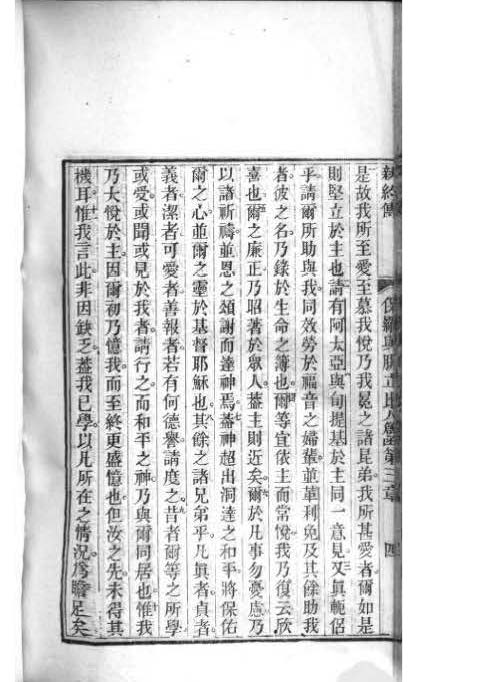 新約傳
保羅與腓立比人書第三章
四
是故我所至愛至慕我悅乃我冕之諸昆弟我所甚愛者爾如是
則堅立於主也請有阿太亞與旬提基於主同一意見又眞軛侶
乎請爾所助與我同效勞於福音之婦輩並革利免及其餘助我
者彼之名乃錄於生命之簿也爾等宜依主而常悅我乃復云欣
喜也爾之廉正乃昭著於眾人葢主則近矣爾於凡事勿憂慮乃
以諸祈禱並恩之頌謝而達神焉葢神超出洞達之和平將保佑
爾之心並爾之靈於基督耶穌也其餘之諸兄弟乎凡眞者貞者
義者潔者可愛者善報者若有何德譽請度之昔者爾等之所學
或受或聞或見於我者請行之而和平之神乃與爾同居也惟我
乃大悅於主因爾初乃憶我而至終更盛憶也但汝之先未得其
機耳惟我言此非因缺乏葢我已學以凡所在之情況為贍足矣